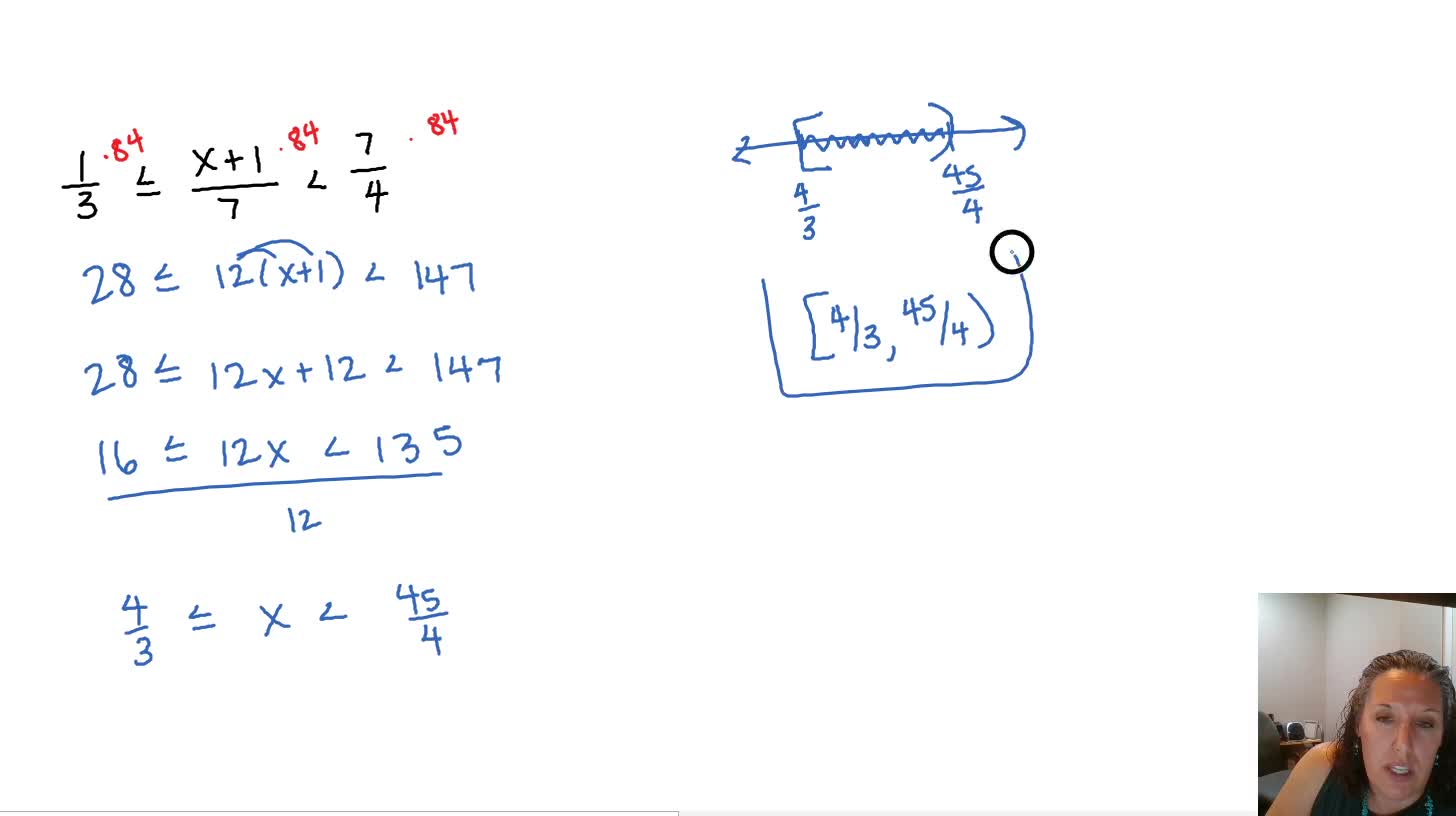 1/3 ·84 ≤ x+1/7 ·84 < 7/4 ·84
28 ≤ 12(x+1) < 147
28 ≤ 12x+12 < 147
16 ≤ 12x < 135
12
4/3 ≤ x < 45/4
[ )
4/3 45/4
[4/3, 45/4)